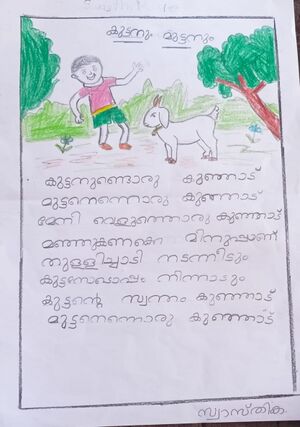 കുട്ടനും മുട്ടനും
കുട്ടനുണ്ടൊരു കുഞ്ഞാട്
മുട്ടനെന്നൊരു കുഞ്ഞാട്
മേനി വെളുത്തൊരു കുഞ്ഞാട്
മഞ്ഞുകണക്കെ മിനുപ്പാണ്
തുള്ളിച്ചാടി നടന്നീടും
കുട്ടനോപ്പം നിന്നാടും
കുട്ടന്റെ സ്വന്തം കുഞ്ഞാട്
മുട്ടനെന്നൊരു കുഞ്ഞാട്
സ്വാസ്തിക